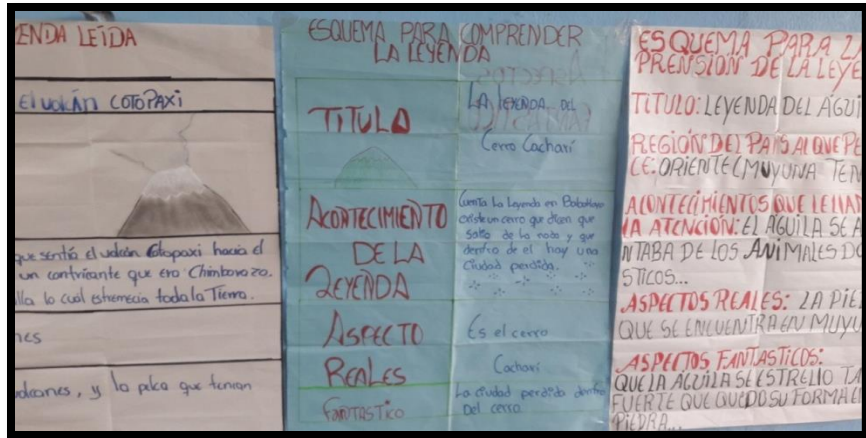 ENDA LEÍDA
El volcán COTOPAXI
que sentía el volcán Cotopaxi hacia el
un contrincante que era Chimborazo.
lla lo cual estremecía toda la Tierra.
nes
volcanes, y la pelea que tenían
ESQUEMA PARA COMPRENDER
LA LEYENDA
TITULO
LA leyenda del
Cerro Cacharí
ACONTECIMIENTO
DE LA
LEYENDA
Cuenta la Leyenda en Babahoyo
existe un cerro que dicen que
salio de la nada y que
dentro de el hay una
Ciudad perdida.
ASPECTO
REALES
Es el cerro
Cacharí
FANTASTICO
La ciudad perdida dentro
Del cerro
ESQUEMA PARA LA
PRENSIÓN DE LA LEYE
TITULO: LEYENDA DEL AGUI
REGIÓN DEL PAÍS AL QUE PE
CE: ORIENTE (MUYUNA TEN
ACONTECIMIENTOS QUE LE LLAM
LA ATENCIÓN: EL ÁGUILA SE A
NTABA DE LOS ANIMALES DO
STICOS...
ASPECTOS REALES: LA PIE
QUE SE ENCUENTRA EN MUYU
ASPECTOS FANTASTICOS:
QUE LA AGUILA SE ESTRELLO TA
FUERTE QUE QUEDO SU FORMA EN
PIEDRA...